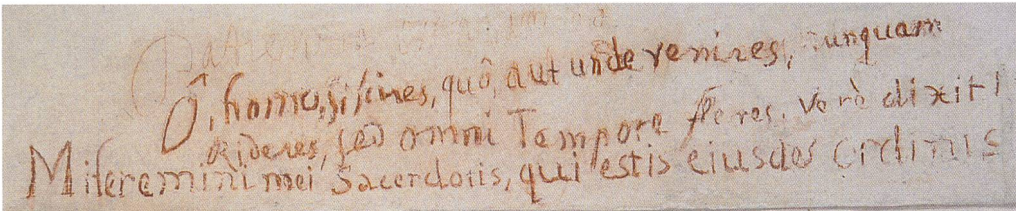 Ô, homo, si scires, quô, aut unde venires, nunquam
rideres, sed omni Tempore fleres. Verè dixit!
Miseremini mei Sacerdotis, qui estis eiusdes Ordinis